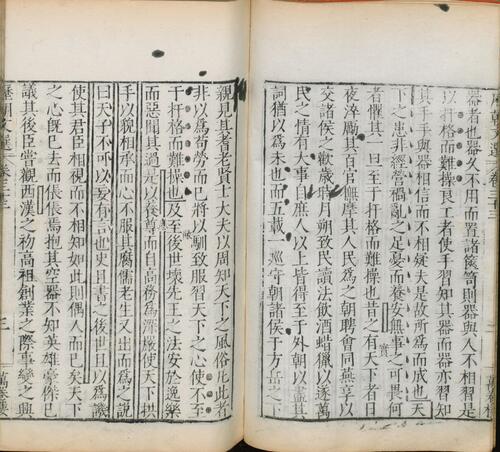 器者也器久不用而置諸篋笥則器與人不相習是
以扞格而難操良工者使手習知其器而器亦習知
其手手與器相信而不相疑夫是故所為而成也天
下之患非經營禍亂之足憂而養安無事之可畏何
者懼其一旦至于扞格而難操也昔之有天下者日
夜淬勵其百官撫摩其人民為之朝聘會同燕享以
交諸侯之歡歲時月朔致民讀法飲酒蜡獵以遂萬
民之情有大事自庶人以上皆得至于外朝以盡其
詞猶以為未也而五載一巡守朝諸侯于方岳之下
親見其耆老賢士大夫以周知天下之風俗凡此者
非以為苟勞而已將以馴致服習天下之心使不至
于扞格而難操也及至後世壞先王之法安於逸樂
而惡聞其過是以養尊而自高務為深嚴使天下拱
手以貌相承而心不服其腐儒老生又出而為之說
曰天子不可以妄有言也史且書之後世且以為譏
使其君臣相視而不相知如此則偶人而已矣天下
之心既已去而倀倀焉抱其空器不知英雄豪傑已
議其後臣嘗觀西漢之初高祖創業之際事變之興
歷朝文選 卷三十三 三 萬卷樓